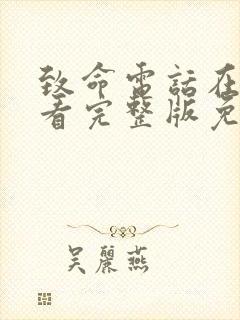 致命電話在
看完整版免
吴麗燕